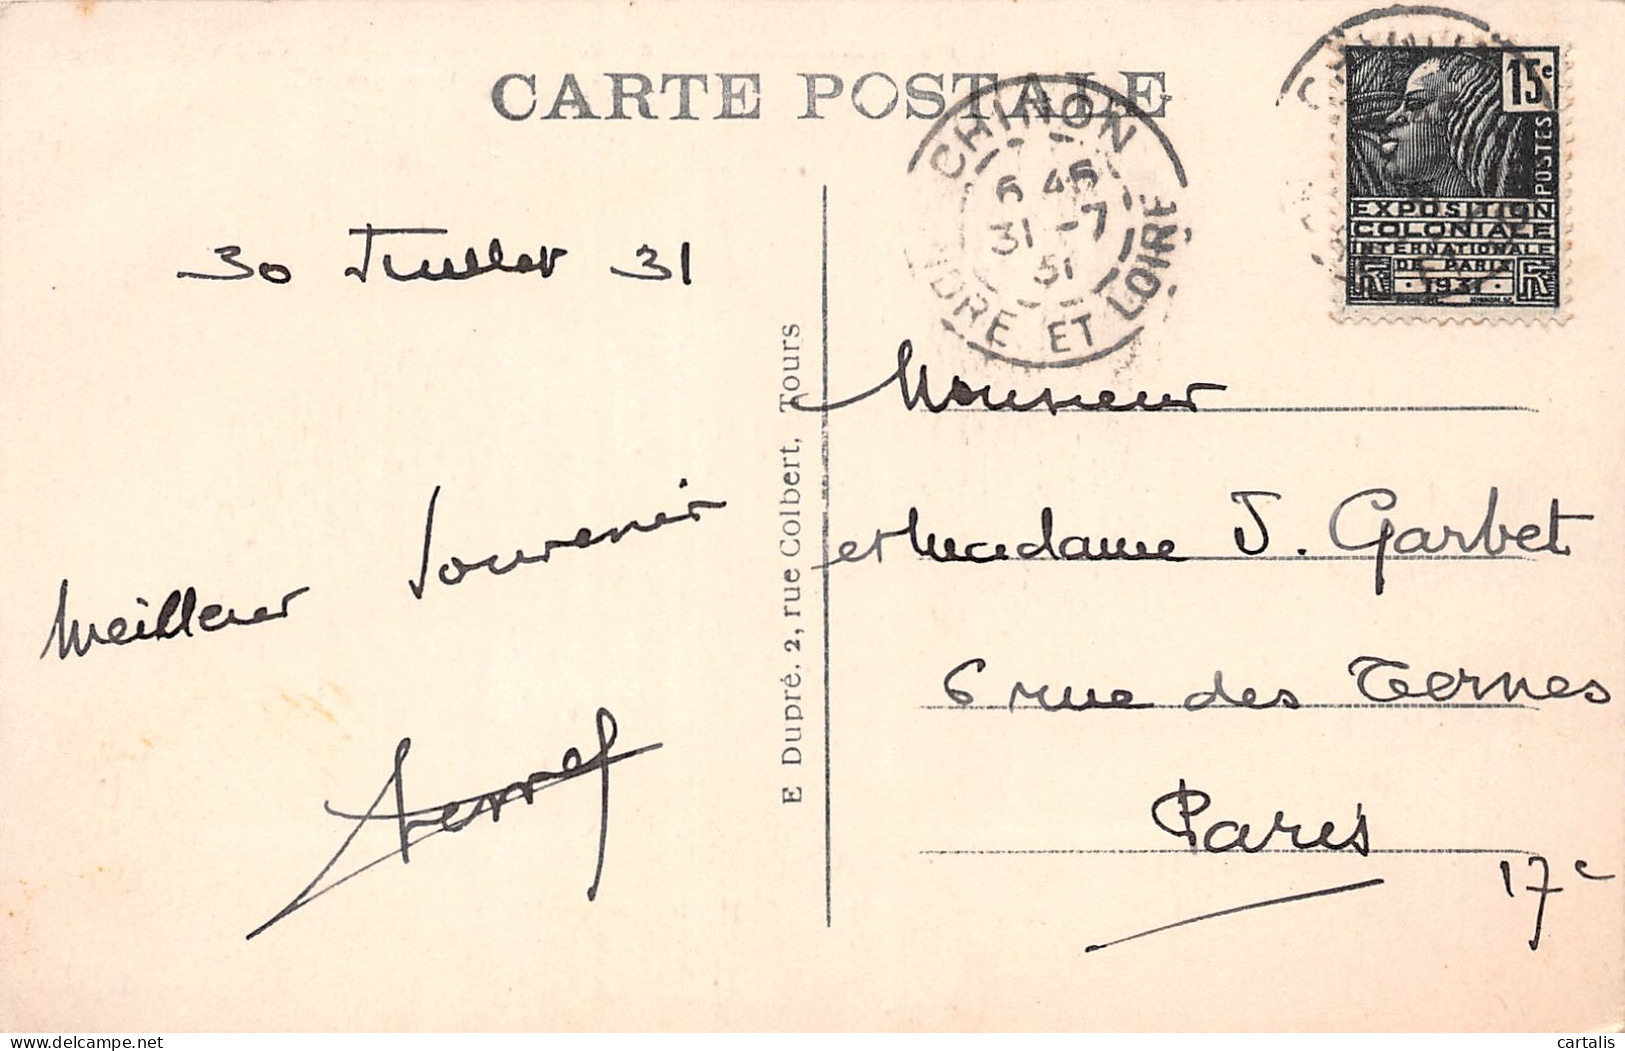 CARTE POSTALE
CHINON
6 45
31 -7
31
INDRE ET LOIRE
15c
POSTES
EXPOSITION
COLONIALE
INTERNATIONALE
DE PARIS
RF · 1931 · RF
30 Juillet 31
Meilleur Souvenir
E Dupré, 2, rue Colbert, Tours
Monsieur
et Madame J. Garbet
6 rue des Ternes
Paris
17e
delcampe.net
cartalis